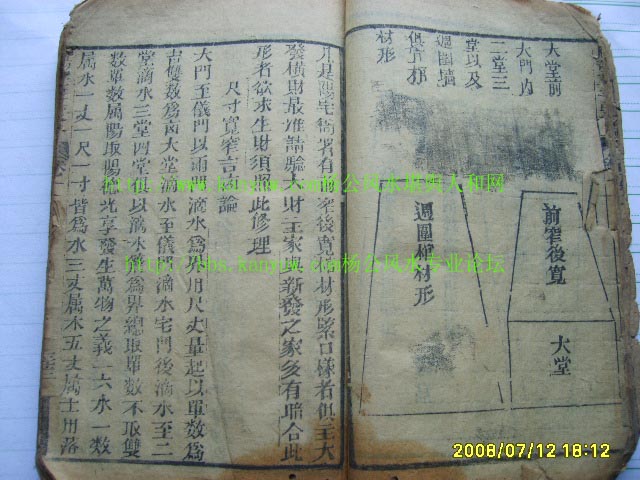 大堂前
大門內
二堂三
堂以及
週圍墻
俱宜棺
材形
前窄後寬
大堂
週圍棺材形
凡是陽宅衙署有前窄後寬棺材形緊口樣者俱主大
發橫財最准請驗大財主家與新發之家多有暗合此
形者欲求生財須照此修理
尺寸寬窄言論
大門至儀門以雨滴水為界用尺丈量起以單數為
吉雙數為凶大堂滴水至儀門滴水宅門後滴水至二
堂滴水三堂四堂俱以滴水為界總取單數不取雙
數單數屬陽取陽光享發生萬物之義一六水一數
屬水一丈一尺一寸皆為水三丈屬木五丈屬土用落
http://www.kanyew.com杨公风水地理人和网
http://bbs.kanyew.com杨公风水专业论坛
2008/07/12 18:12